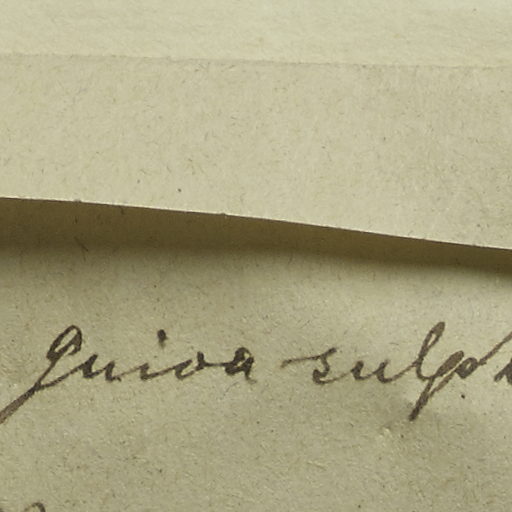 guioa sulph